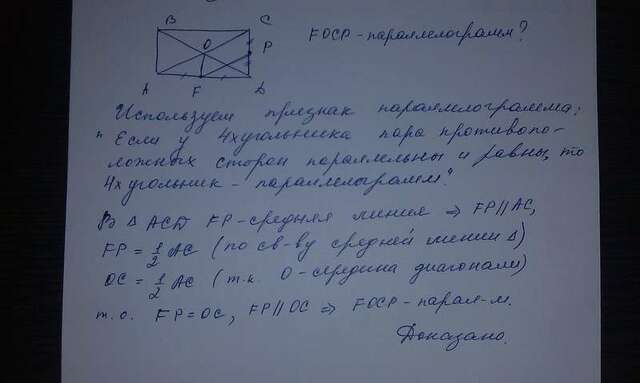 B C
O
P
A F D
FOCP - параллелограмм?
Используем признак параллелограмма:
"Если у 4хугольника пара противопо-
ложных сторон параллельны и равны, то
4х угольник - параллелограмм".
В Δ ACD FP - средняя линия ⇒ FP || AC,
FP = 1/2 AC (по св-ву средней линии Δ)
OC = 1/2 AC (т.к. O - середина диагонали)
т.о. FP = OC, FP || OC ⇒ FOCP - парал-м.
Доказано.